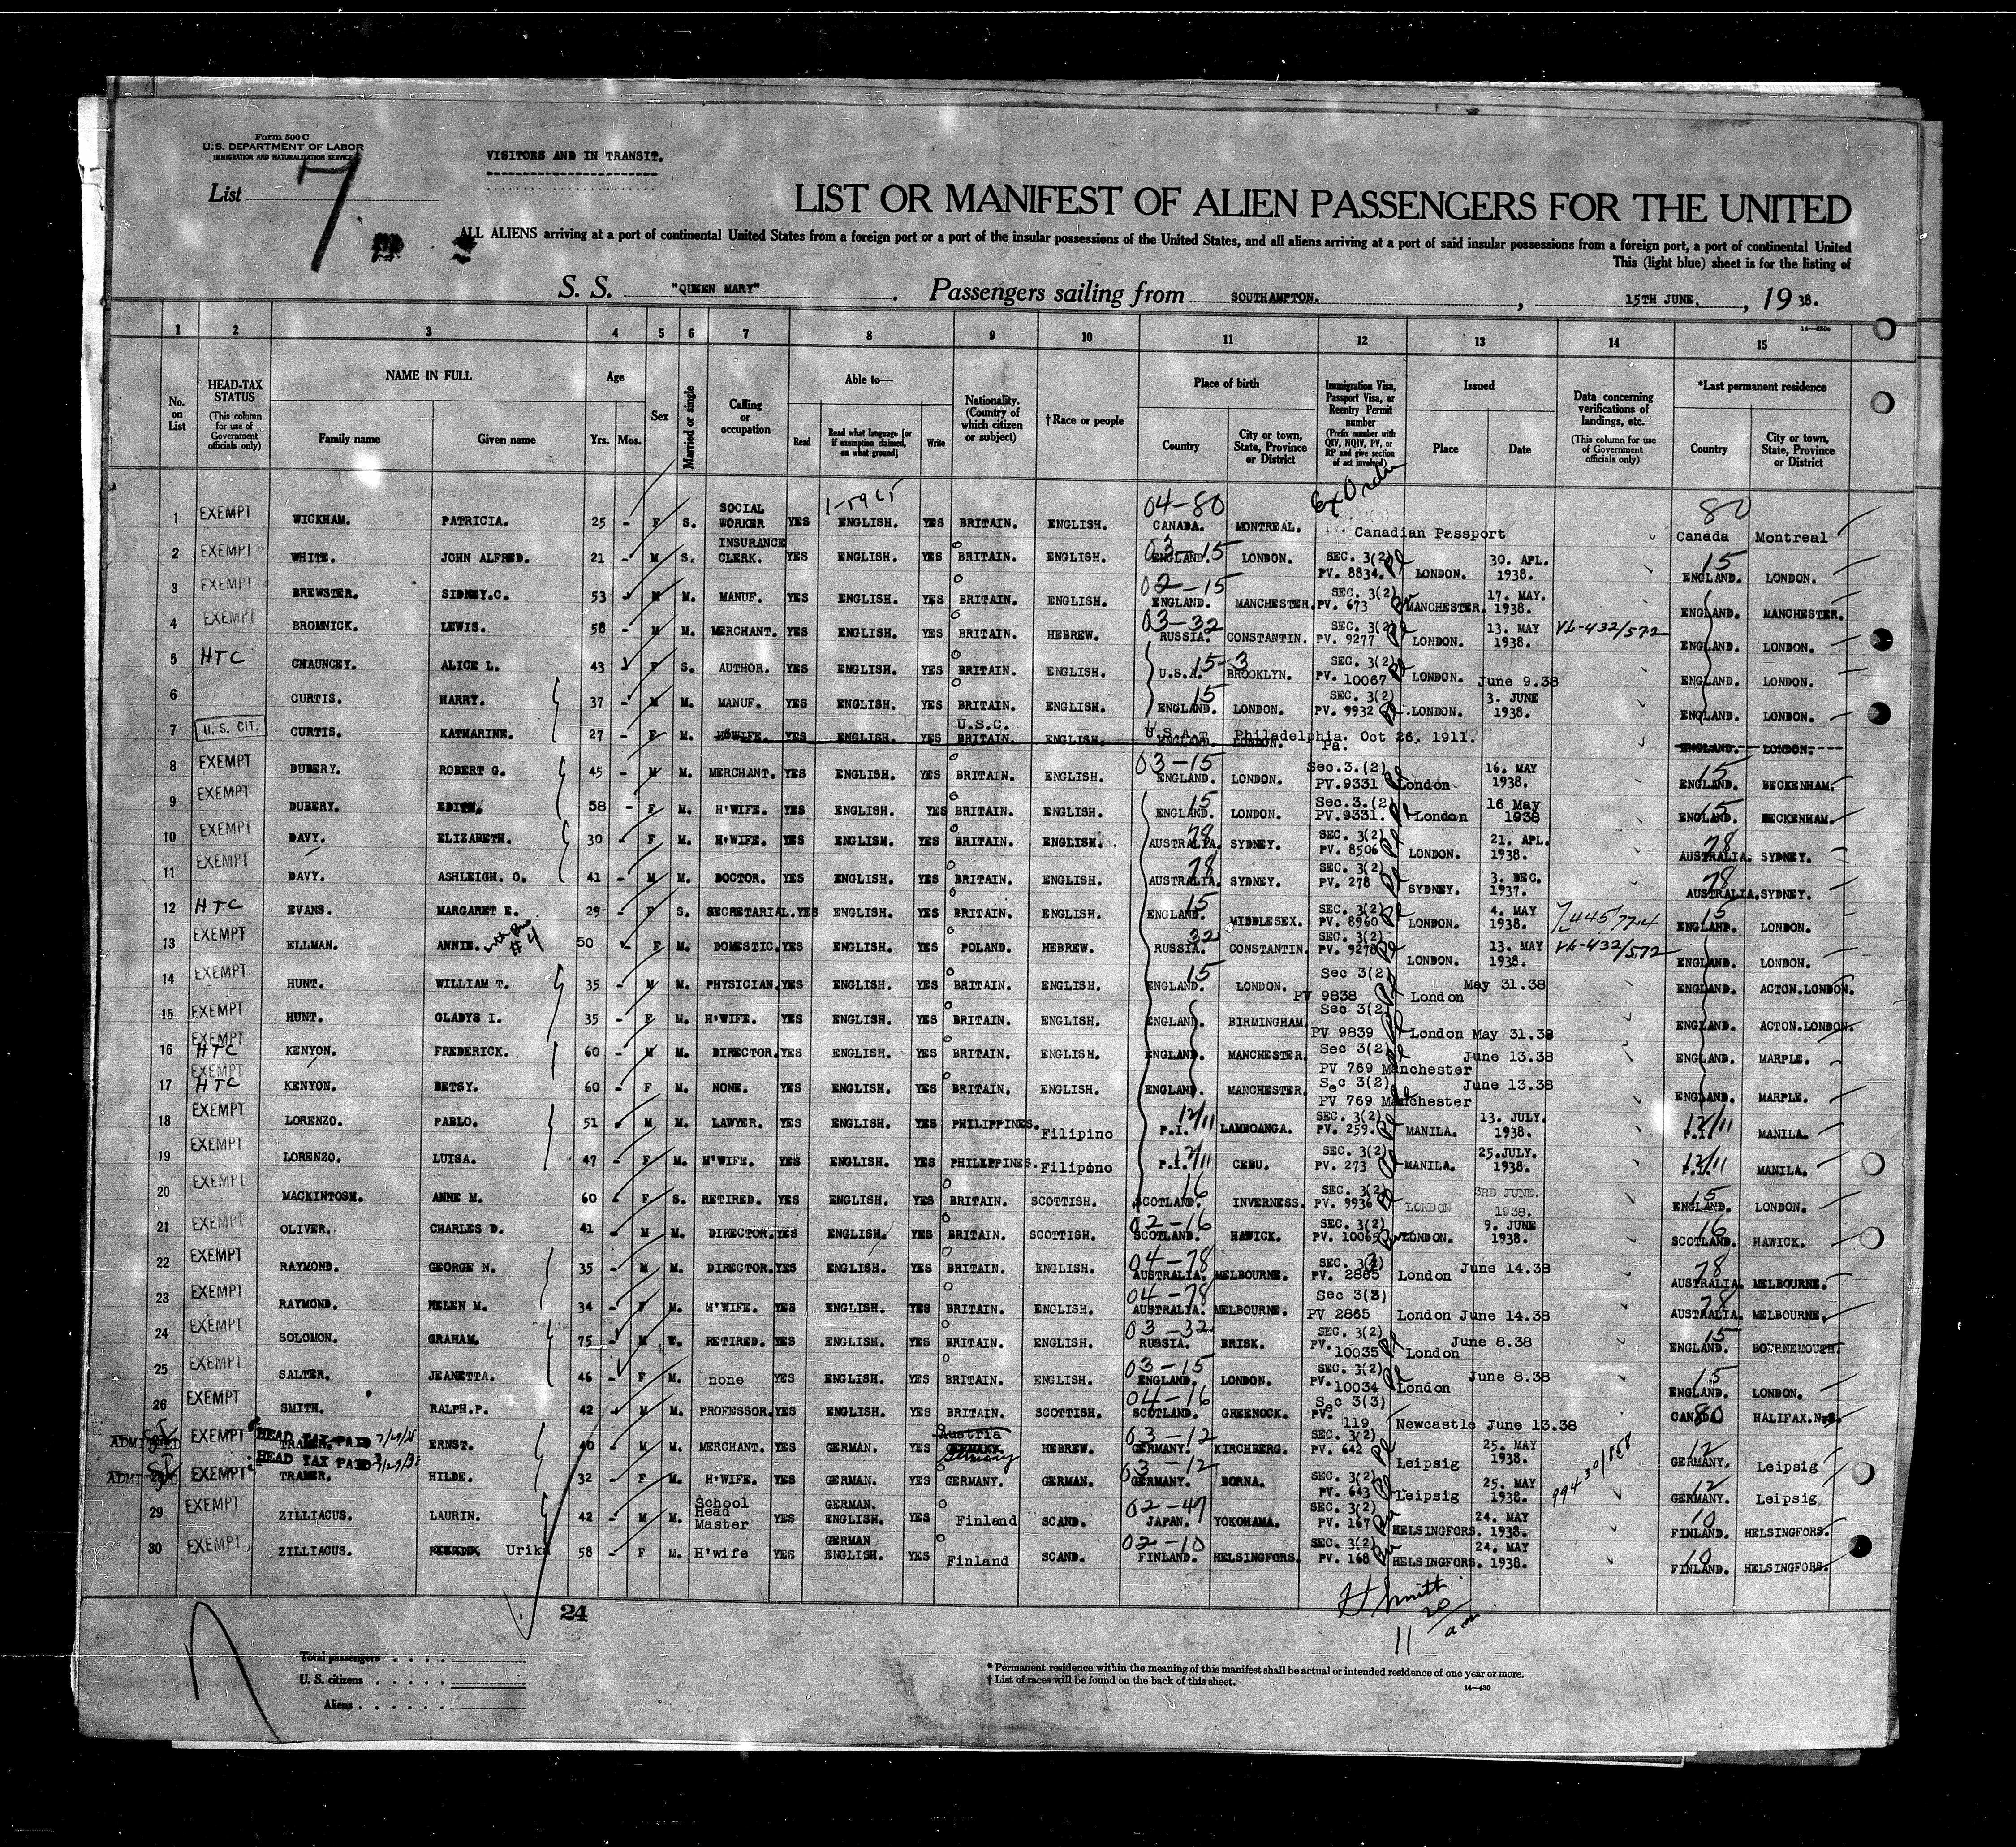 Form 500 C
U.S. DEPARTMENT OF LABOR
IMMIGRATION AND NATURALIZATION SERVICE
VISITORS AND IN TRANSIT.
List 7
LIST OR MANIFEST OF ALIEN PASSENGERS FOR THE UNITED
ALL ALIENS arriving at a port of continental United States from a foreign port or a port of the insular possessions of the United States, and all aliens arriving at a port of said insular possessions from a foreign port, a port of continental United
This (light blue) sheet is for the listing of
S. S. "QUEEN MARY" . Passengers sailing from SOUTHAMPTON. , 15TH JUNE, , 19 38.
14—430a
1 2 3 4 5 6 7 8 9 10 11 12 13 14 15
No. on List
HEAD-TAX STATUS (This column for use of Government officials only)
NAME IN FULL Family name Given name
Age Yrs. Mos.
Sex
Married or single
Calling or occupation
Able to— Read Read what language [or if exemption claimed, on what ground] Write
Nationality. (Country of which citizen or subject)
†Race or people
Place of birth Country City or town, State, Province or District
Immigration Visa, Passport Visa, or Reentry Permit number (Prefix number with QIV, NQIV, PV, or RP and give section of act involved)
Issued Place Date
Data concerning verifications of landings, etc. (This column for use of Government officials only)
*Last permanent residence Country City or town, State, Province or District
1 EXEMPT WICKHAM. PATRICIA. 25 - F S. SOCIAL WORKER YES ENGLISH. YES BRITAIN. ENGLISH. 04-80 CANADA. MONTREAL. Canadian Passport 80 Canada Montreal
2 EXEMPT WHITE. JOHN ALFRED. 21 - M S. INSURANCE CLERK. YES ENGLISH. YES BRITAIN. ENGLISH. 03-15 ENGLAND. LONDON. SEC. 3(2) PV. 8834. LONDON. 30. APL. 1938. 15 ENGLAND. LONDON.
3 EXEMPT BREWSTER. SIDNEY.C. 53 - M M. MANUF. YES ENGLISH. YES BRITAIN. ENGLISH. 02-15 ENGLAND. MANCHESTER. SEC. 3(2) PV. 673 MANCHESTER. 17. MAY. 1938. ENGLAND. MANCHESTER.
4 EXEMPT BROMNICK. LEWIS. 58 - M M. MERCHANT. YES ENGLISH. YES BRITAIN. HEBREW. 03-32 RUSSIA. CONSTANTIN. SEC. 3(2) PV. 9277 LONDON. 13. MAY 1938. VL-432/572 ENGLAND. LONDON.
5 HTC CHAUNCEY. ALICE L. 43 F S. AUTHOR. YES ENGLISH. YES BRITAIN. ENGLISH. 15-3 U.S.A. BROOKLYN. SEC. 3(2) PV. 10067 LONDON. June 9.38 ENGLAND. LONDON.
6 CURTIS. HARRY. 37 - M M. MANUF. YES ENGLISH. YES BRITAIN. ENGLISH. 15 ENGLAND. LONDON. SEC. 3(2) PV. 9932 LONDON. 3. JUNE 1938. ENGLAND. LONDON.
7 U.S. CIT. CURTIS. KATHARINE. 27 - F M. H'WIFE. YES ENGLISH. YES U.S.C. BRITAIN. ENGLISH. U.S.A. ENGLAND LONDON. Philadelphia. Pa. Oct 26, 1911. ENGLAND. LONDON.
8 EXEMPT DUBERY. ROBERT G. 45 - M M. MERCHANT. YES ENGLISH. YES BRITAIN. ENGLISH. 03-15 ENGLAND. LONDON. Sec.3.(2) PV.9331 London 16. MAY 1938. 15 ENGLAND. BECKENHAM.
9 EXEMPT DUBERY. EDITH. 58 - F M. H'WIFE. YES ENGLISH. YES BRITAIN. ENGLISH. 15 ENGLAND. LONDON. Sec.3.(2) PV.9331. London 16 May 1938 15 ENGLAND. BECKENHAM.
10 EXEMPT DAVY. ELIZABETH. 30 F M. H'WIFE. YES ENGLISH. YES BRITAIN. ENGLISH. 78 AUSTRALIA. SYDNEY. SEC. 3(2) PV. 8506 LONDON. 21. APL. 1938. 78 AUSTRALIA. SYDNEY.
11 EXEMPT DAVY. ASHLEIGH. O. 41 - M M. DOCTOR. YES ENGLISH. YES BRITAIN. ENGLISH. 78 AUSTRALIA. SYDNEY. SEC. 3(2) PV. 278 SYDNEY. 3. DEC. 1937. 78 AUSTRALIA. SYDNEY.
12 HTC EVANS. MARGARET E. 29 - F S. SECRETARIAL. YES ENGLISH. YES BRITAIN. ENGLISH. 15 ENGLAND. MIDDLESEX. SEC. 3(2) PV. 8960 LONDON. 4. MAY 1938. 15 ENGLAND. LONDON.
13 EXEMPT ELLMAN. ANNIE. #4 50 F M. DOMESTIC. YES ENGLISH. YES POLAND. HEBREW. 32 RUSSIA. CONSTANTIN. SEC. 3(2) PV. 9278 LONDON. 13. MAY 1938. VL-432/572 ENGLAND. LONDON.
14 EXEMPT HUNT. WILLIAM T. 35 - M M. PHYSICIAN. YES ENGLISH. YES BRITAIN. ENGLISH. 15 ENGLAND. LONDON. Sec 3(2) PV 9838 London May 31.38 ENGLAND. ACTON.LONDON.
15 EXEMPT HUNT. GLADYS I. 35 - F M. H'WIFE. YES ENGLISH. YES BRITAIN. ENGLISH. ENGLAND. BIRMINGHAM. Sec 3(2) PV 9839 London May 31.38 ENGLAND. ACTON.LONDON.
16 EXEMPT HTC KENYON. FREDERICK. 60 - M M. DIRECTOR. YES ENGLISH. YES BRITAIN. ENGLISH. ENGLAND. MANCHESTER. Sec 3(2) PV 769 Manchester June 13.38 ENGLAND. MARPLE.
17 EXEMPT HTC KENYON. BETSY. 60 - F M. NONE. YES ENGLISH. YES BRITAIN. ENGLISH. ENGLAND. MANCHESTER. Sec 3(2) PV 769 Manchester June 13.38 ENGLAND. MARPLE.
18 EXEMPT LORENZO. PABLO. 51 M M. LAWYER. YES ENGLISH. YES PHILIPPINES. Filipino 12/11 P.I. LAMBOANGA. SEC. 3(2) PV. 259. MANILA. 13. JULY. 1938. 12/11 P.I. MANILA.
19 EXEMPT LORENZO. LUISA. 47 - F M. H'WIFE. YES ENGLISH. YES PHILIPPINES. Filipino 12/11 P.I. CEBU. SEC. 3(2) PV. 273 MANILA. 25.JULY. 1938. 12/11 P.I. MANILA.
20 EXEMPT MACKINTOSH. ANNE M. 60 F S. RETIRED. YES ENGLISH. YES BRITAIN. SCOTTISH. 16 SCOTLAND. INVERNESS. SEC. 3(2) PV. 9936 LONDON 3RD JUNE. 1938. 15 ENGLAND. LONDON.
21 EXEMPT OLIVER. CHARLES D. 41 M M. DIRECTOR. YES ENGLISH. YES BRITAIN. SCOTTISH. 02-16 SCOTLAND. HAWICK. SEC. 3(2) PV. 10065 LONDON. 9. JUNE 1938. 16 SCOTLAND. HAWICK.
22 EXEMPT RAYMOND. GEORGE N. 35 - M M. DIRECTOR. YES ENGLISH. YES BRITAIN. ENGLISH. 04-78 AUSTRALIA. MELBOURNE. SEC. PV. 2865 London June 14.38 78 AUSTRALIA. MELBOURNE.
23 EXEMPT RAYMOND. HELEN M. 34 - F M. H'WIFE. YES ENGLISH. YES BRITAIN. ENGLISH. 04-78 AUSTRALIA. MELBOURNE. Sec 3(3) PV 2865 London June 14.38 78 AUSTRALIA. MELBOURNE.
24 EXEMPT SOLOMON. GRAHAM. 75 M W. RETIRED. YES ENGLISH. YES BRITAIN. ENGLISH. 03-32 RUSSIA. BRISK. SEC. 3(2) PV. 10035 London June 8.38 15 ENGLAND. BOURNEMOUTH.
25 EXEMPT SALTER. JEANETTA. 46 - F M. none YES ENGLISH. YES BRITAIN. ENGLISH. 03-15 ENGLAND. LONDON. SEC. 3(2) PV. 10034 London June 8.38 15 ENGLAND. LONDON.
26 EXEMPT SMITH. RALPH.P. 42 M M. PROFESSOR. YES ENGLISH. YES BRITAIN. SCOTTISH. 04-16 SCOTLAND. GREENOCK. Sec 3(3) PV. 119 Newcastle June 13.38 80 CANADA HALIFAX.N.S.
ADMITTED EXEMPT HEAD TAX PAID TRAMER. ERNST. 40 - M M. MERCHANT. YES GERMAN. YES Austria GERMANY. Germany HEBREW. 03-12 GERMANY. KIRCHBERG. SEC. 3(2) PV. 642 Leipsig 25. MAY 1938. 12 GERMANY. Leipsig
ADMITTED EXEMPT HEAD TAX PAID TRAMER. HILDE. 32 - F M. H'WIFE. YES GERMAN. YES GERMANY. GERMAN. 03-12 GERMANY. BORNA. SEC. 3(2) PV. 643 Leipsig 25. MAY 1938. 12 GERMANY. Leipsig
29 EXEMPT ZILLIACUS. LAURIN. 42 - M M. School Head Master YES GERMAN. ENGLISH. YES Finland SCAND. 02-47 JAPAN. YOKOHAMA. SEC. 3(2) PV. 167 HELSINGFORS. 24. MAY 1938. 10 FINLAND. HELSINGFORS.
30 EXEMPT ZILLIACUS. Urika 58 - F M. H'wife YES GERMAN ENGLISH. YES Finland SCAND. 02-10 FINLAND. HELSINGFORS. SEC. 3(2) PV. 168 HELSINGFORS. 24. MAY 1938. 10 FINLAND. HELSINGFORS.
24
Smith
11 20 a.m.
Total passengers
U. S. citizens
Aliens
* Permanent residence within the meaning of this manifest shall be actual or intended residence of one year or more.
† List of races will be found on the back of this sheet.
14—430